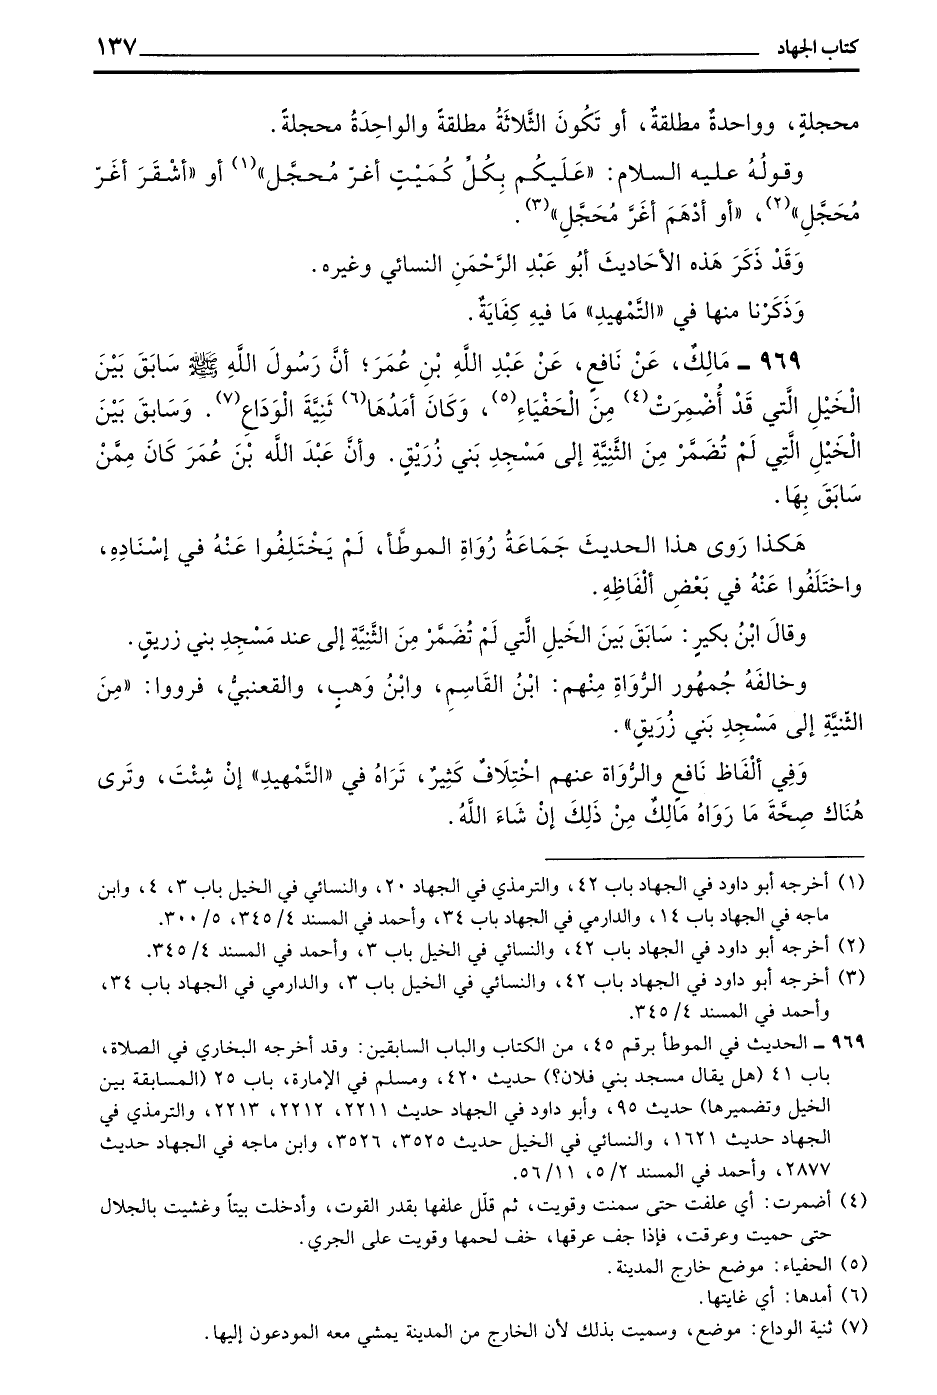 كتاب الجهاد ١٣٧
محجلةٍ، وواحدةٌ مطلقةٌ، أو تَكُونَ الثَّلاثَةُ مطلقةً والواحِدَةُ محجلةً.
وقولُهُ عليه السلام: «عَلَيكُم بِكُلِّ كُمَيْتٍ أغرّ مُحجَّل»(١) أو «أشْقَرَ أغَرّ
مُحَجَّلِ»(٢)، «أو أدْهَمَ أغَرَّ مُحَجَّلِ»(٣).
وَقَدْ ذَكَرَ هَذه الأحَاديثَ أبُو عَبْدِ الرَّحْمَنِ النسائي وغيره.
وَذَكَرْنا منها في «التَّمْهيدِ» مَا فيهِ كِفَايَةٌ.
٩٦٩ - مَالِكٌ، عَنْ نَافعٍ، عَنْ عَبْدِ اللَّهِ بْنِ عُمَرَ؛ أنَّ رَسُولَ اللَّهِ ﷺ سَابَقَ بَيْنَ
الْخَيْلِ الَّتي قَدْ أُضْمِرَتْ(٤) مِنَ الْحَفْيَاءِ(٥)، وَكَانَ أمَدُهَا(٦) ثَنِيَّةَ الْوَدَاعِ(٧). وَسَابَقَ بَيْنَ
الْخَيْلِ الَّتِي لَمْ تُضَمَّرْ مِنَ الثَّنِيَّةِ إلى مَسْجِدِ بَني زُرَيْقٍ. وأنَّ عَبْدَ الله بْنَ عُمَرَ كَانَ مِمَّنْ
سَابَقَ بِهَا.
هَكذا رَوى هذا الحديثَ جَمَاعَةُ رُوَاةِ الموطَّأ، لَمْ يَخْتَلِفُوا عَنْهُ في إسْنَادِهِ،
واختَلَفُوا عَنْهُ في بَعْضِ ألْفَاظِهِ.
وقالَ ابْنُ بكيرٍ: سَابَقَ بَينَ الخَيلِ الَّتي لَمْ تُضَمَّرْ مِنَ الثَّنِيَّةِ إلى عند مَسْجِدِ بني زريقٍ.
وخالفَهُ جُمهُور الرُّوَاةِ مِنْهم: ابْنُ القَاسِمِ، وابْنُ وَهبٍ، والقعنبيُّ، فرووا: «مِنَ
الثّنيَّةِ إلى مَسْجِدِ بَني زُرَيقٍ».
وَفِي ألْفَاظ نَافعٍ والرُّوَاة عنهم اخْتِلَافٌ كَثِيرٌ، تَرَاهُ في «التَّمْهِيدِ» إنْ شِئْتَ، وتَرى
هُنَاكَ صِحَّةَ مَا رَوَاهُ مَالِكٌ مِنْ ذَلِكَ إنْ شَاءَ اللَّهُ.
(١) أخرجه أبو داود في الجهاد باب ٤٢، والترمذي في الجهاد ٢٠، والنسائي في الخيل باب ٣، ٤، وابن
ماجه في الجهاد باب ١٤، والدارمي في الجهاد باب ٣٤، وأحمد في المسند ٤/ ٣٤٥، ٥/ ٣٠٠.
(٢) أخرجه أبو داود في الجهاد باب ٤٢، والنسائي في الخيل باب ٣، وأحمد في المسند ٤/ ٣٤٥.
(٣) أخرجه أبو داود في الجهاد باب ٤٢، والنسائي في الخيل باب ٣، والدارمي في الجهاد باب ٣٤،
وأحمد في المسند ٤/ ٣٤٥.
٩٦٩ - الحديث في الموطأ برقم ٤٥، من الكتاب والباب السابقين: وقد أخرجه البخاري في الصلاة،
باب ٤١ (هل يقال مسجد بني فلان؟) حديث ٤٢٠، ومسلم في الإمارة، باب ٢٥ (المسابقة بين
الخيل وتضميرها) حديث ٩٥، وأبو داود في الجهاد حديث ٢٢١١، ٢٢١٢، ٢٢١٣، والترمذي في
الجهاد حديث ١٦٢١، والنسائي في الخيل حديث ٣٥٢٥، ٣٥٢٦، وابن ماجه في الجهاد حديث
٢٨٧٧، وأحمد في المسند ٥/٢، ٥٦/١١.
(٤) أضمرت: أي علفت حتى سمنت وقويت، ثم قلّل علفها بقدر القوت، وأدخلت بيتاً وغشيت بالجلال
حتى حميت وعرقت، فإذا جف عرقها، خف لحمها وقويت على الجري.
(٥) الحفياء: موضع خارج المدينة.
(٦) أمدها: أي غايتها.
(٧) ثنية الوداع: موضع، وسميت بذلك لأن الخارج من المدينة يمشي معه المودعون إليها.